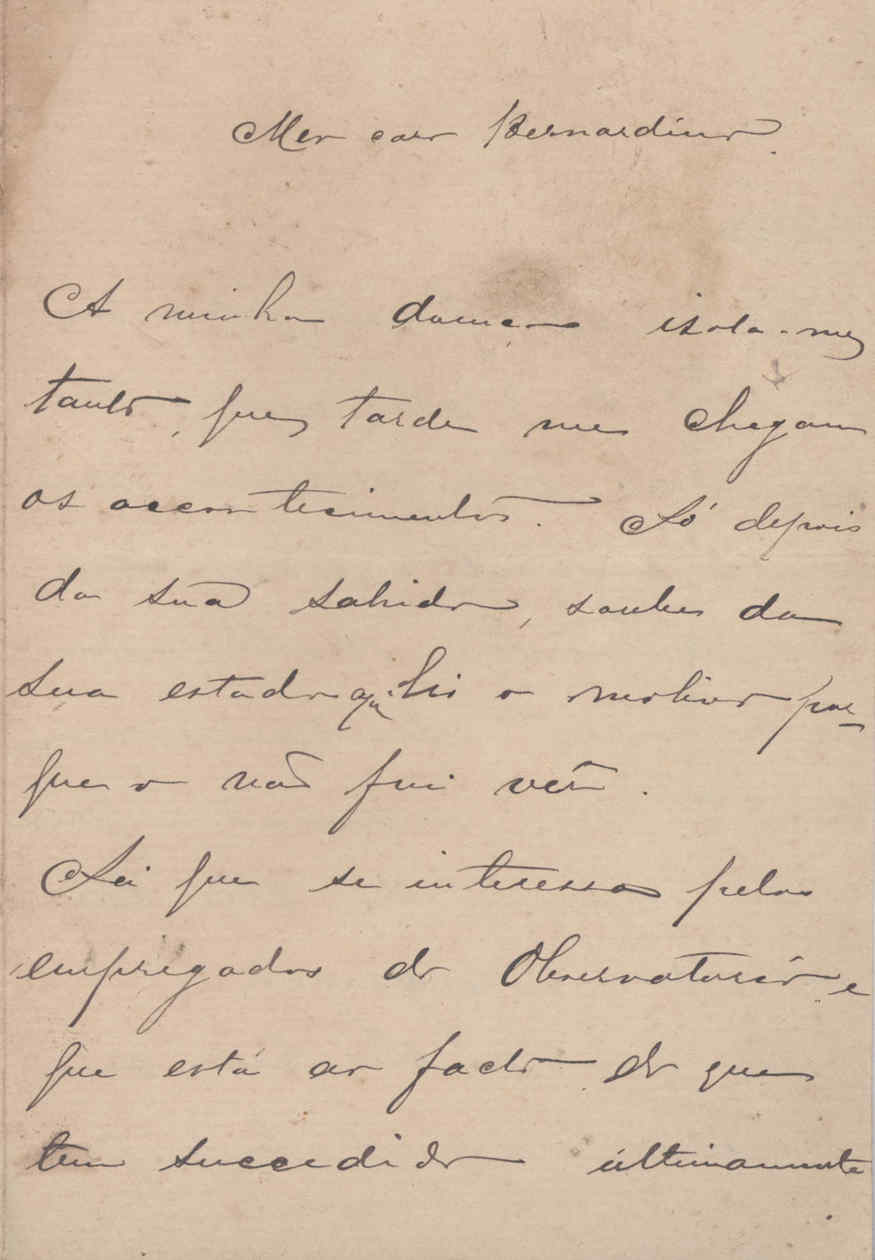 Meu caro Bernardino.
A minha doença isola-me
tanto, que tarde me chegam
os acontecimentos. Só depois
da sua sahida, soube da
sua estada aqui. Eis o motivo por-
que o não fui vêr.
Sei que se interessa pelos
empregados do Observatorio e
que está ao facto do que
tem succedido últimamente